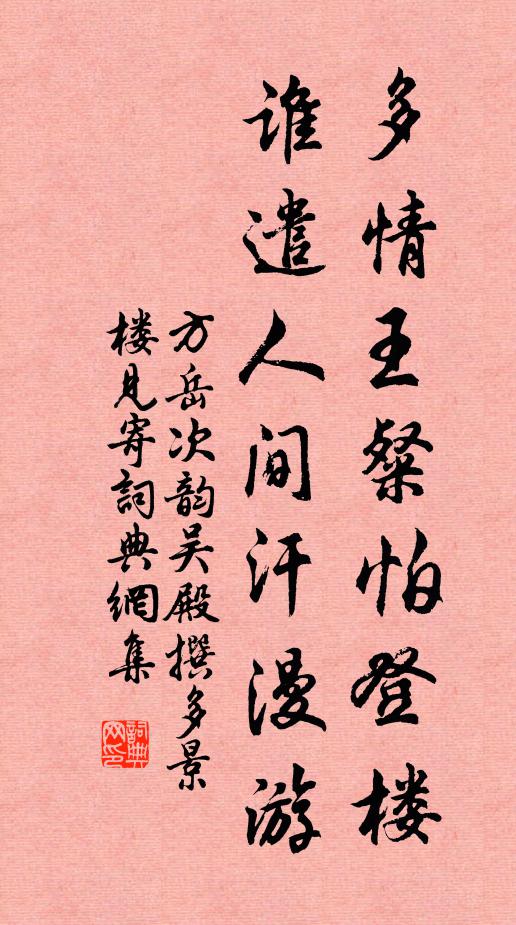 多情王粲怕登楼
谁遣人间汗漫游
方岳次韵吴殿撰多景
楼见寄词典網集
詞典
网印